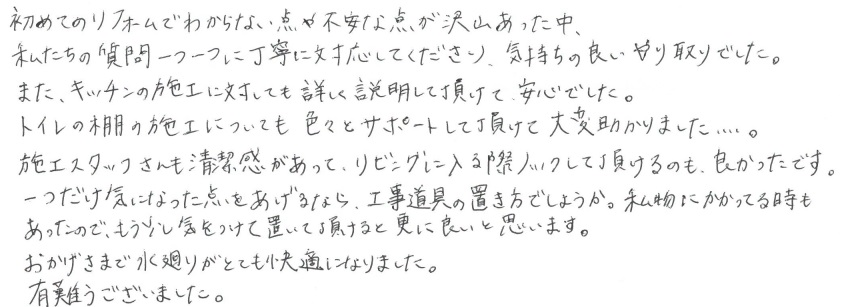 初めてのリフォームでわからない点や不安な点が沢山あった中、
私たちの質問一つ一つに丁寧に対応してくださり、気持ちの良いやり取りでした。
また、キッチンの施工に対しても詳しく説明して頂けて、安心でした。
トイレの棚の施工についても色々とサポートして頂けて大変助かりました....。
施工スタッフさんも清潔感があって、リビングに入る際ノックして頂けるのも、良かったです。
一つだけ気になった点をあげるなら、工事道具の置き方でしょうか。私物にかかってる時も
あったので、もう少し気をつけて置いて頂けると更に良いと思います。
おかげさまで水廻りがとても快適になりました。
有難うございました。